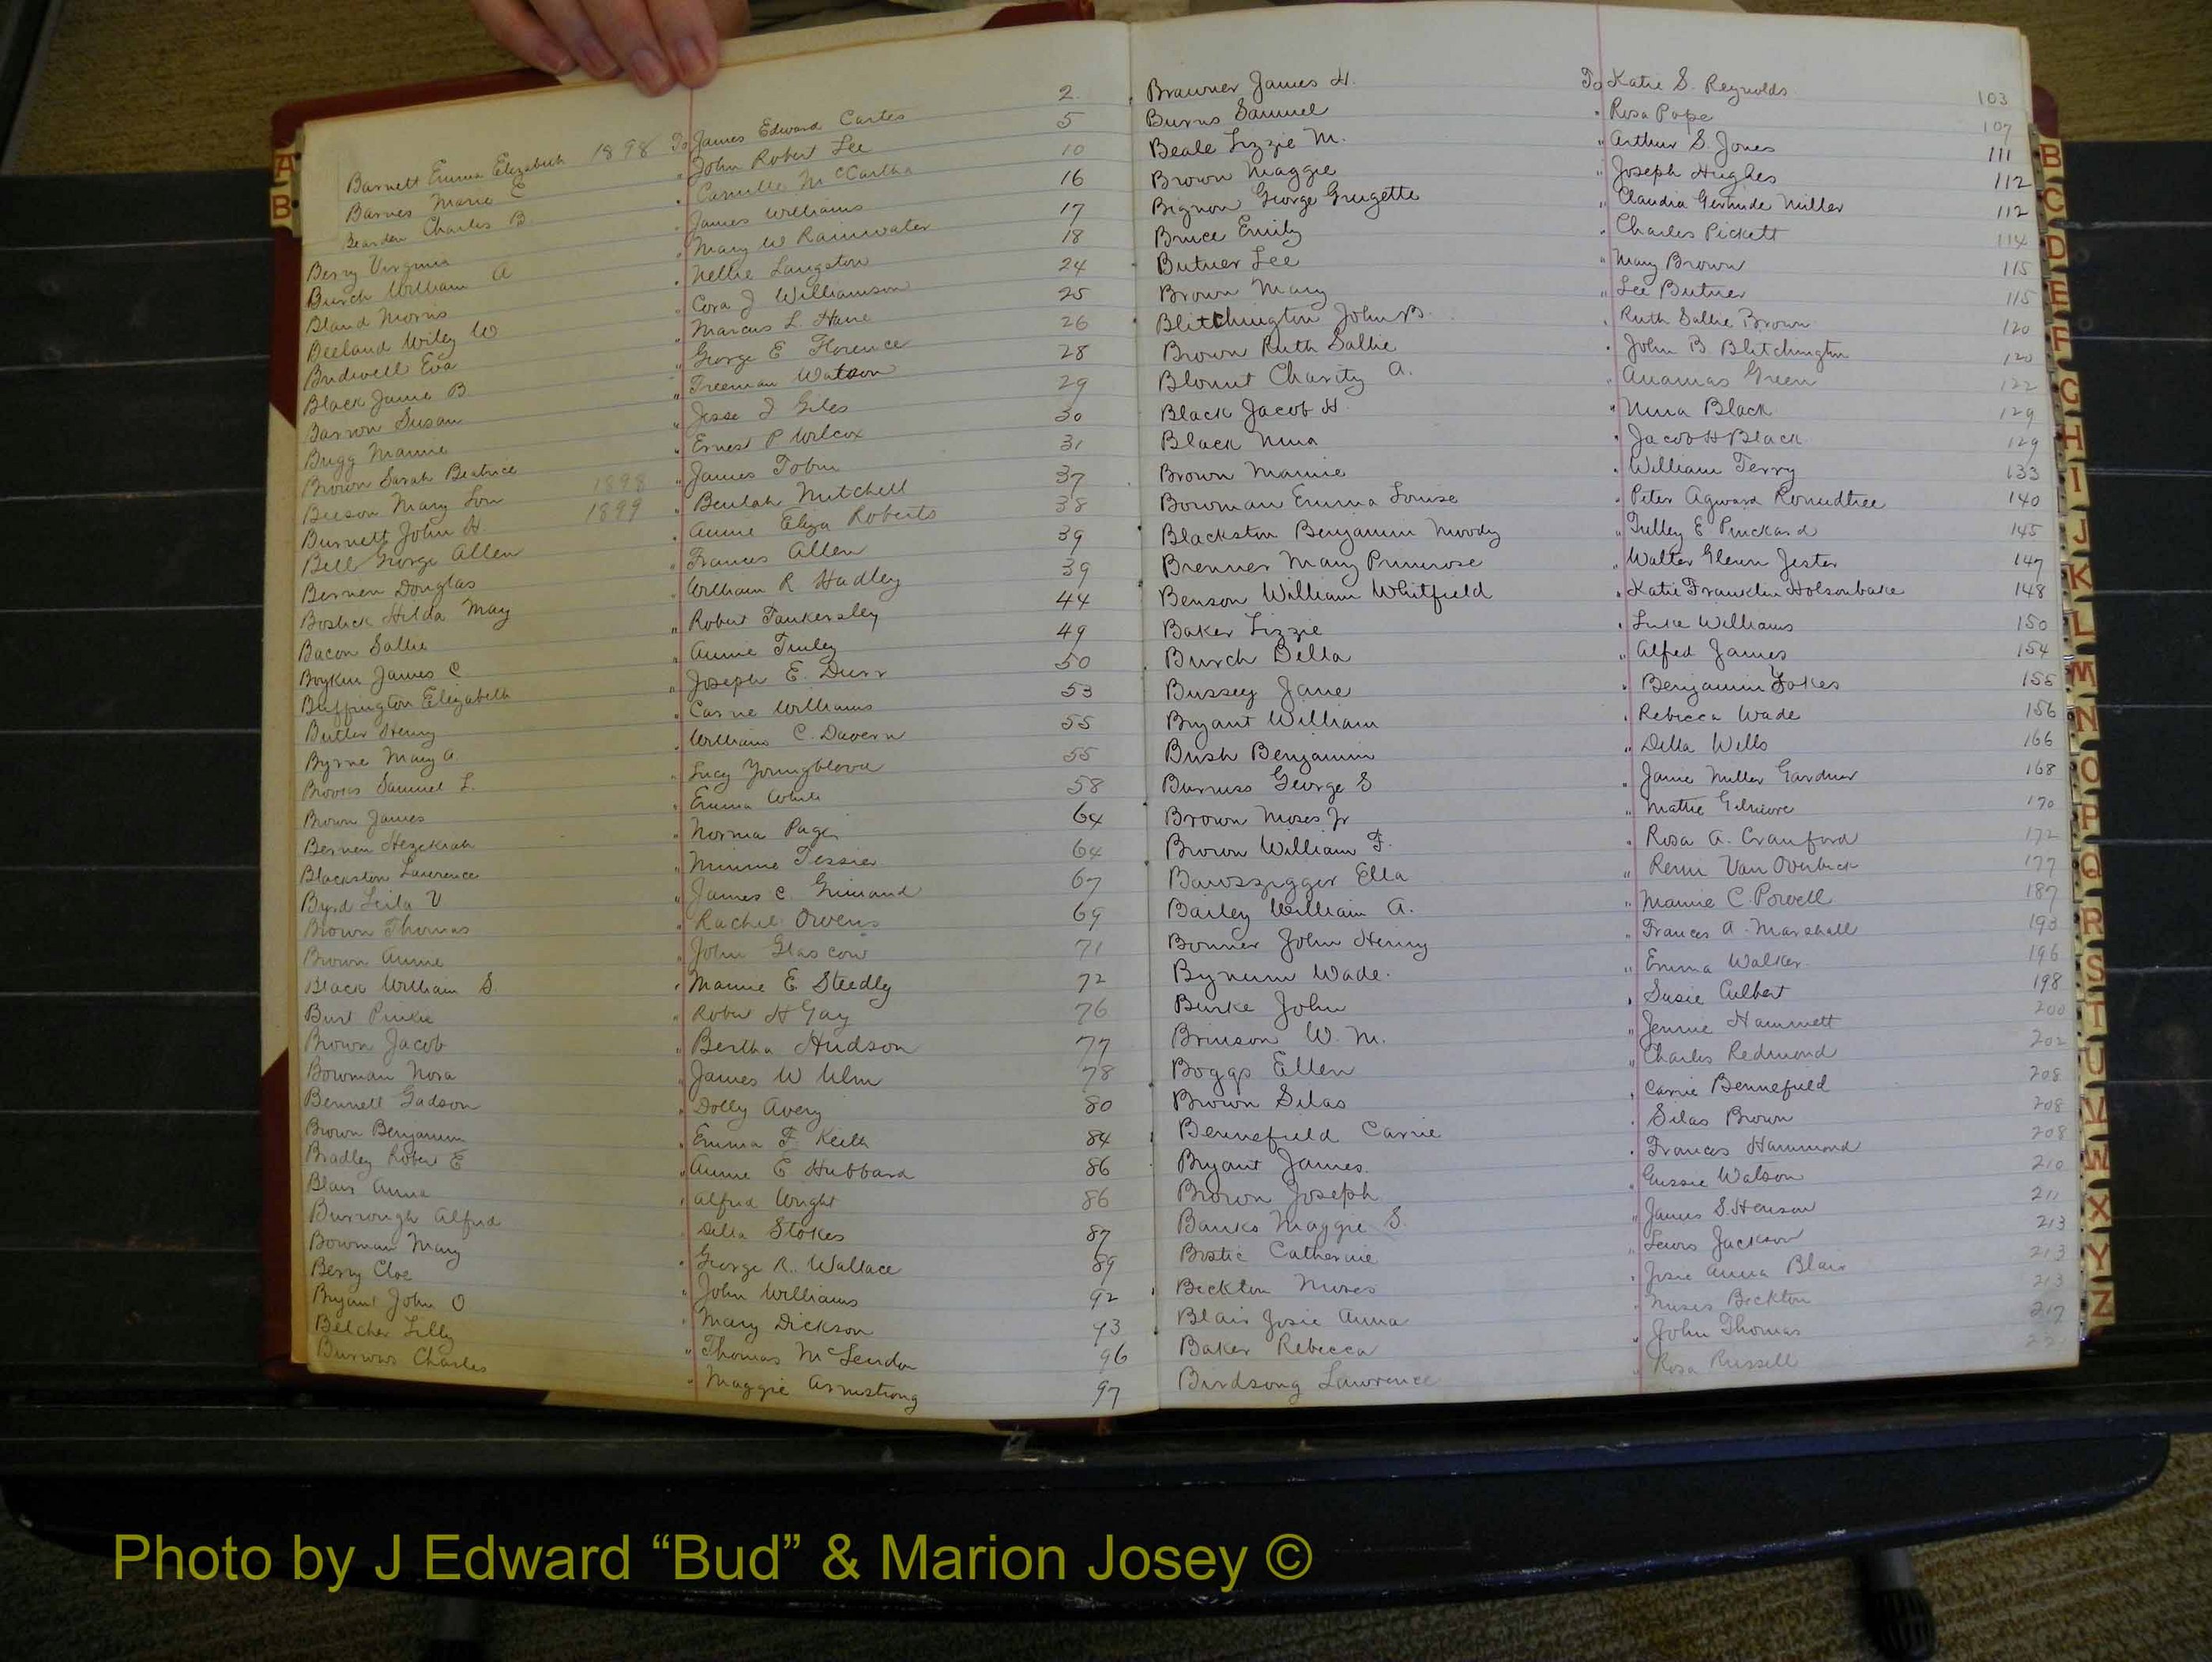 A
B
Barnett Emma Elizabeth 1898 To James Edward Carter 2
Barnes Marie E " John Robert Lee 5
Bearden Charles B. " Camille McCartha 10
Berry Virginia " James Williams 16
Burch William A " Mary W Rainwater 17
Bland Morris " Nellie Langston 18
Beeland Wiley W " Cora J Williamson 24
Bridwell Eva " Marcus L. Hane 25
Black Jamie B " George E Florence 26
Barron Susan " Freeman Watson 28
Bugg Mamie " Jesse J Giles 29
Brown Sarah Beatrice " Ernest P Wilcox 30
Beeson Mary Lou 1898 " James Tobin 31
Burnett John H 1899 " Beulah Mitchell 37
Bell George Allen " Annie Eliza Roberts 38
Bernen Douglas " Frances Allen 39
Bostick Hilda May " William R Hadley 39
Bacon Sallie " Robert Tankersley 44
Boykin James C. " Annie Tinley 49
Buffington Elizabeth " Joseph E. Durr 50
Butler Henry " Carrie Williams 53
Byrne Mary A " William C. Davern 55
Samuel L. " Lucy Youngblood 55
Brown James " Emma White 58
Bernen Hezekiah " Norma Page 64
Blackston Lawrence " Minnie Tessier 64
Byrd Leila V " James C. 67
Brown Thomas " Rachel Owens 69
Brown Annie " John Glascow 71
Black William S. " Mamie E. Steedly 72
Burt Pinkie " Robert H Gay 76
Brown Jacob " Bertha Hudson 77
Bowman Nora " James W Ulm 78
Bennett Gadson " Dolly Avery 80
Brown Benjamin " Emma F. Keith 84
Bradley Robert E " Annie E Hubbard 86
Blair Anna " Alfred Wright 86
Burrough Alfred " Delia Stokes 87
Bowman Mary " George R. Wallace 89
Berry Cloe " John Williams 92
Bryant John O " Mary Dickson 93
Belcher Lilly " Thomas McLendon 96
Charles " Maggie Armstrong 97
Brawner James H. To Katie S. Reynolds 103
Burns Samuel " Rosa Pope 107
Beale Lizzie M. " Arthur S. Jones 111
Brown Maggie " Joseph Hughes 112
Bignon George Grugette " Claudia Gertrude Miller 112
Bruce Emily " Charles Pickett 114
Butner Lee " Mary Brown 115
Brown Mary " Lee Butner 115
Blitchington John B. " Ruth Sallie Brown 120
Brown Ruth Sallie " John B. Blitchington 120
Blount Charity A. " Ananias Green 122
Black Jacob H. " Nina Black 129
Black Nina " Jacob H Black 129
Brown Mamie " William Terry 133
Bowman Emma Louise " Peter Roundtree 140
Blackston Benjamin Moody " Tulley E Pinckard 145
Brenner Mary Primrose " Walter Glenn Jester 147
Benson William Whitfield " Katie Franklin Holsonbake 148
Baker Lizzie " Luke Williams 150
Burch Della " Alfred James 154
Bussey Jane " Benjamin Yokes 155
Bryant William " Rebecca Wade 156
Bush Benjamin " Della Wells 166
Burruss George S " Janie Miller Gardner 168
Brown Moses Jr " Mattie Gilmore 170
Brown William F. " Rosa A. Crawford 172
Bawszigger Ella " Remi Van Overbeck 177
Bailey William A. " Mamie C. Powell 187
Bonner John Henry " Frances A. Marshall 193
Bynum Wade. " Emma Walker. 196
Burke John " Susie Culbert 198
Brinson W. M. " Jennie Hammett 200
Boggs Ellen " Charles Redmond 202
Brown Silas " Carrie Bennefield 208
Bennefield Carrie " Silas Brown 208
Bryant James. " Frances Hammond 208
Brown Joseph " Gussie Watson 210
Banks Maggie S. " James S. Henson 211
Bostic Catherine " Lewis Jackson 213
Beckton Moses " Josie Anna Blair 213
Blair Josie Anna " Moses Beckton 213
Baker Rebecca " John Thomas 217
Birdsong Lawrence " Rosa Russell
B
C
D
E
F
G
H
I
J
K
L
M
N
O
P
Q
R
S
T
U
V
W
X
Y
Z
Photo by J Edward “Bud” & Marion Josey ©